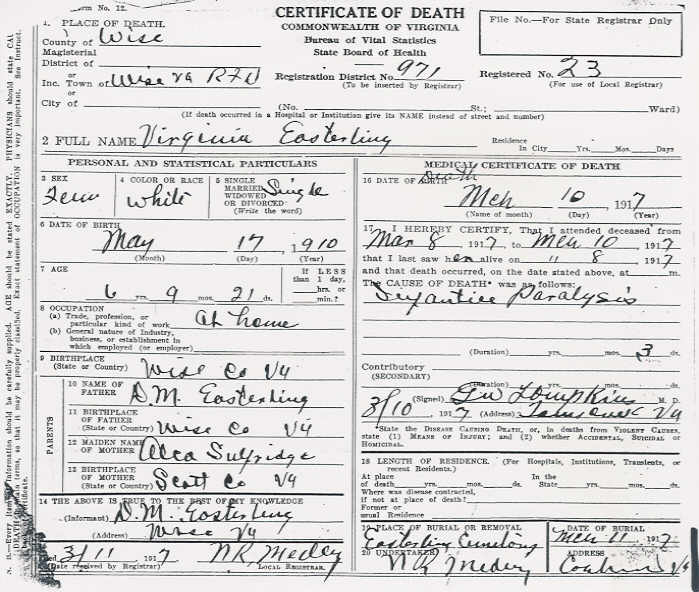 Form No. 12.
CERTIFICATE OF DEATH
COMMONWEALTH OF VIRGINIA
Bureau of Vital Statistics
State Board of Health
File No.—For State Registrar Only
1. PLACE OF DEATH.
County of Wise
Magisterial
District of
or
Inc. Town of Wise Va RFD
or
City of
Registration District No. 971
(To be inserted by Registrar)
Registered No. 23
(For use of Local Registrar)
(No. St.; Ward)
(If death occurred in a Hospital or Institution give its NAME instead of street and number)
2 FULL NAME Virginia Easterling
Residence
In City Yrs. Mos. Days
PERSONAL AND STATISTICAL PARTICULARS
3 SEX
Fem
4 COLOR OR RACE
White
5 SINGLE
MARRIED
WIDOWED
OR DIVORCED
(Write the word)
Single
6 DATE OF BIRTH
May 17, 1910
(Month) (Day) (Year)
7 AGE
6 yrs. 9 mos. 21 ds.
If LESS
than 1 day,
hrs. or
min.?
8 OCCUPATION
(a) Trade, profession, or
particular kind of work At home
(b) General nature of Industry,
business, or establishment in
which employed (or employer)
9 BIRTHPLACE
(State or Country) Wise Co Va
PARENTS
10 NAME OF
FATHER D. M. Easterling
11 BIRTHPLACE
OF FATHER
(State or Country) Wise Co Va
12 MAIDEN NAME
OF MOTHER
13 BIRTHPLACE
OF MOTHER
(State or Country) Scott Co Va
14 THE ABOVE IS TRUE TO THE BEST OF MY KNOWLEDGE
(Informant) D. M. Easterling
(Address) Wise Va
Filed 3/11 1917 N R Medley
(Date received by Registrar) LOCAL REGISTRAR.
MEDICAL CERTIFICATE OF DEATH
16 DATE OF BIRTH Death
Mch 10 1917
(Name of month) (Day) (Year)
17 I HEREBY CERTIFY, That I attended deceased from
Mar 8 1917, to Mch 10, 1917
that I last saw her alive on " 8, 1917
and that death occurred, on the date stated above, at m.
The CAUSE OF DEATH* was as follows:
Infantile Paralysis
(Duration) yrs. mos. 3 ds.
Contributory
(SECONDARY)
(Duration) yrs. mos. ds.
(Signed) G W Tompkins M. D.
3/10, 1917 (Address) Va
State the DISEASE CAUSING DEATH, or, in deaths from VIOLENT CAUSES,
state (1) MEANS OF INJURY; and (2) whether ACCIDENTAL, SUICIDAL or
HOMICIDAL.
18 LENGTH OF RESIDENCE. (For Hospitals, Institutions, Transients, or
recent Residents.)
At place In the
of death yrs. mos. ds. State yrs. mos. ds.
Where was disease contracted,
if not at place of death?
Former or
usual Residence
19 PLACE OF BURIAL OR REMOVAL
Easterling Cemetery
DATE OF BURIAL
Mch 11 1917
20 UNDERTAKER
N R Medley
ADDRESS
Coeburn Va